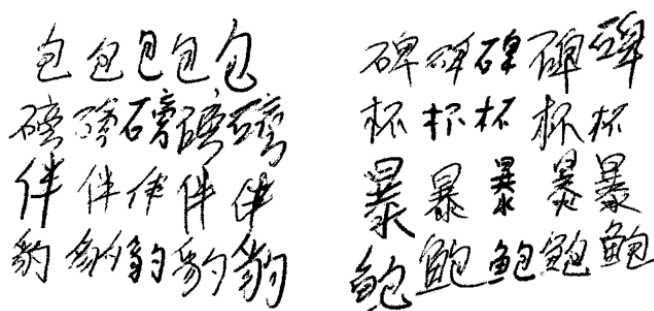 包包包包包
磅磅磅磅磅
伴伴伴伴伴
豹豹豹豹豹
碑碑碑碑碑
杯杯杯杯杯
暴暴暴暴暴
鲍鲍鲍鲍鲍